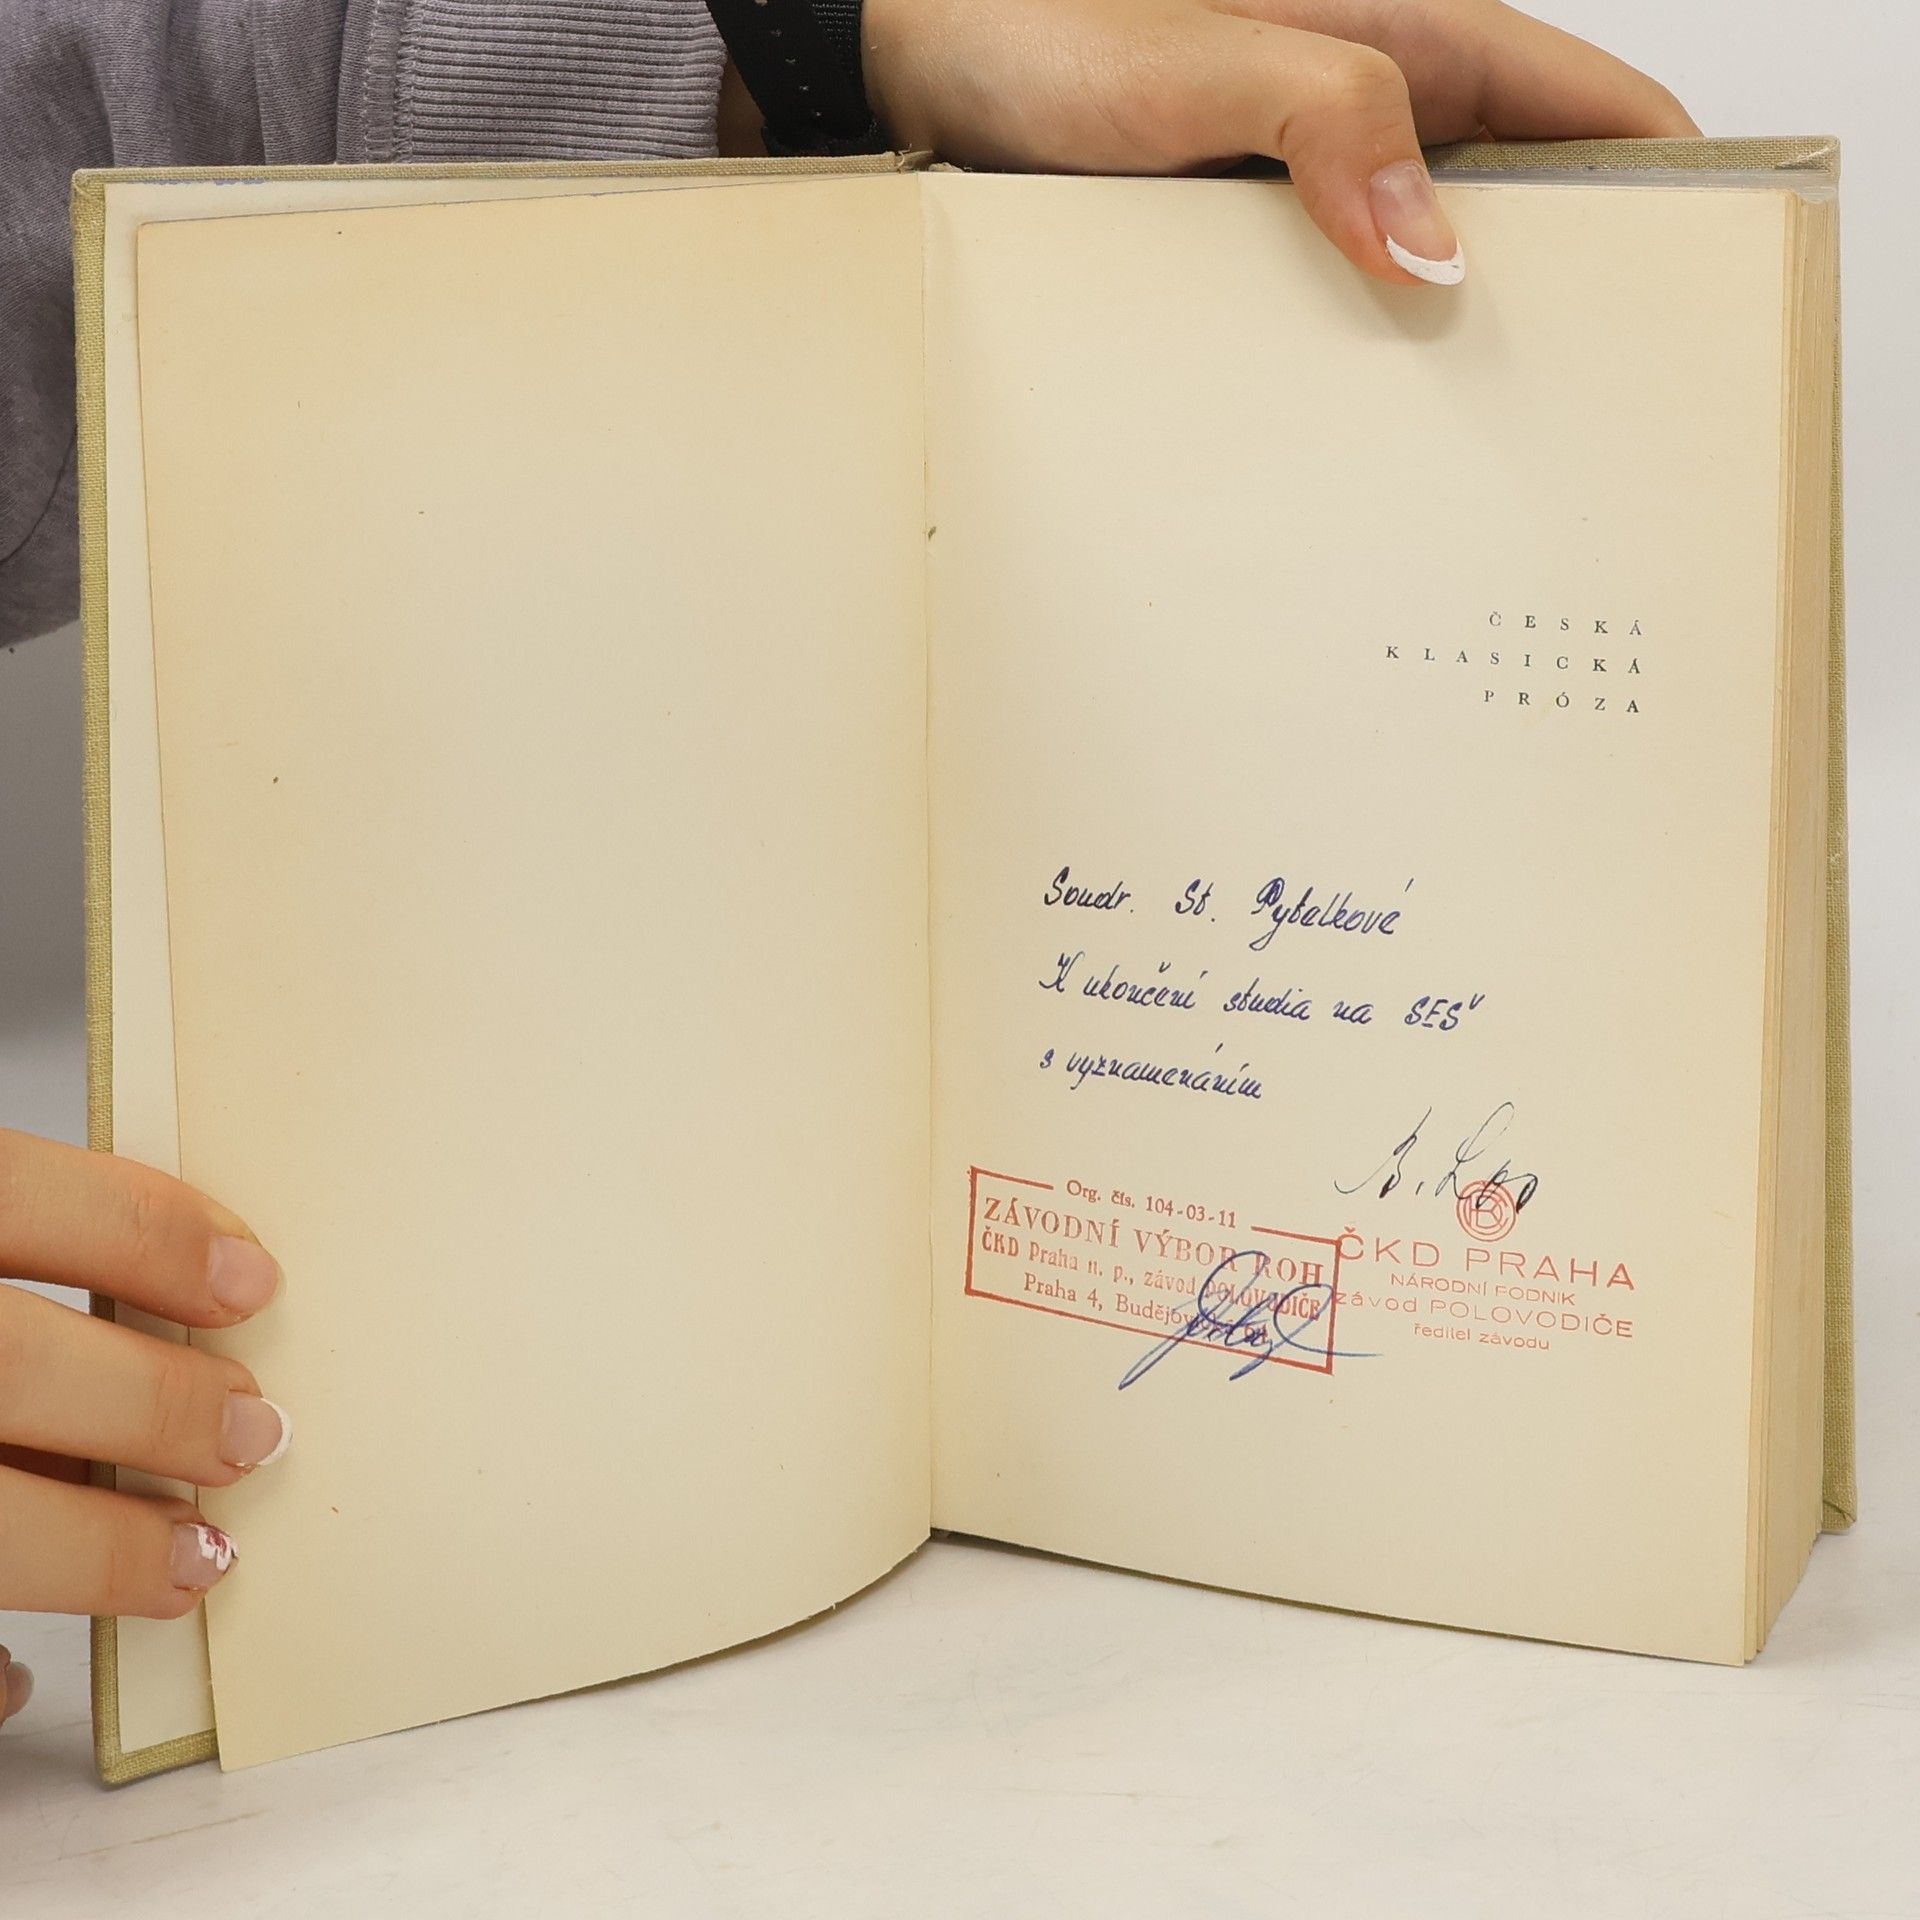 ČESKÁ
KLASICKÁ
PRÓZA
Soudr. St. Pytelkové
K ukončení studia na SEŠ
s vyznamenáním
Org. čís. 104-03-11
ZÁVODNÍ VÝBOR ROH
ČKD Praha n. p., závod POLOVODIČE
Praha 4,
ČKD PRAHA
NÁRODNÍ PODNIK
závod POLOVODIČE
ředitel závodu